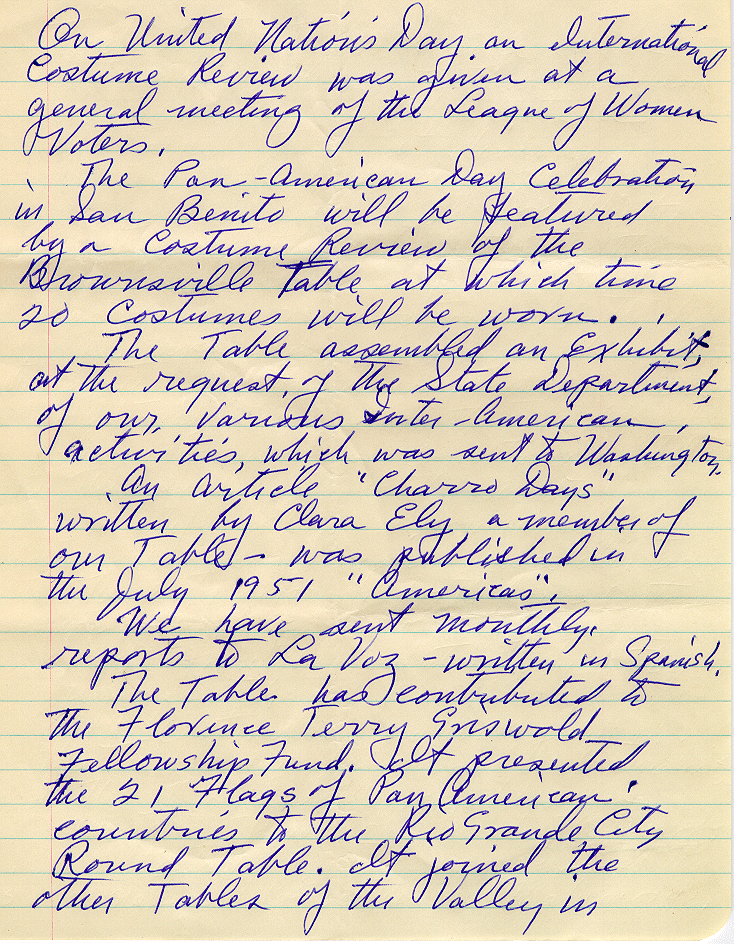 On United Nations Day an International
Costume Review was given at a
general meeting of the League of Women
Voters.
The Pan-American Day Celebration
in San Benito will be featured
by a Costume Review of the
Brownsville Table at which time
20 Costumes will be worn.
The Table assembled an Exhibit,
at the request, of the State Department,
of our, various Inter-American,
activities, which was sent to Washington.
An article "Charro Days"
written by Clara Ely a member of
our Table - was published in
the July 1951 "Americas".
We have sent monthly
reports to La Voz - written in Spanish.
The Table has contributed to
the Florence Terry Griswold
Fellowship Fund. It presented
the 21 Flags of Pan American
countries to the Rio Grande City
Round Table. It joined the
other Tables of the Valley in